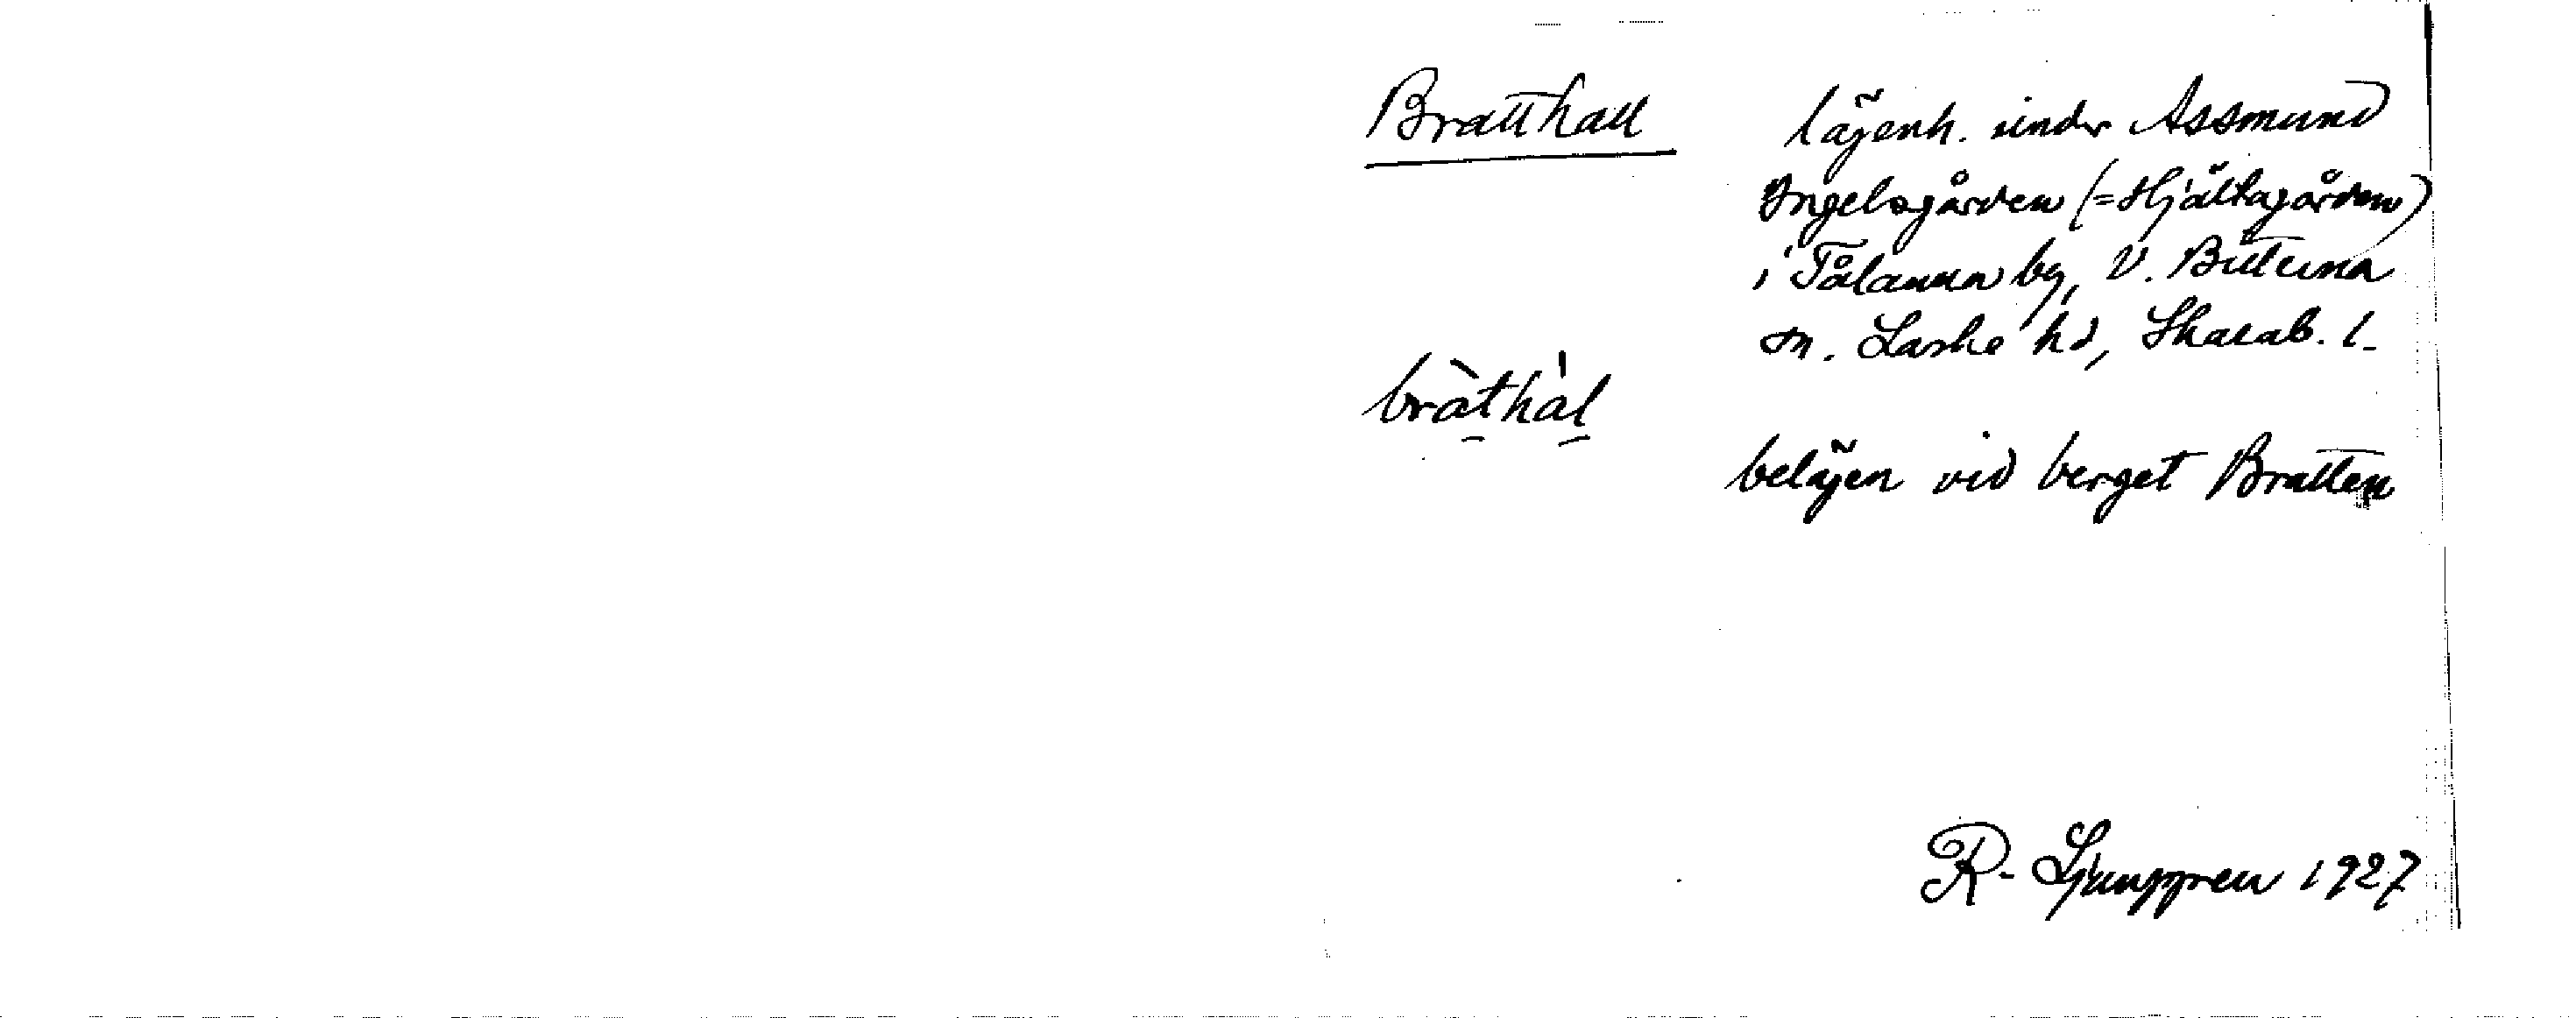 Bratthall
lägenh. under Assmund
Ingelsgården (=Hjältagården)
i Tålanna by, V. Bitterna
sn. Laske hd, Skarab. l.
bràthàl
belägen vid berget Bratten
R. Ljunggren 1927